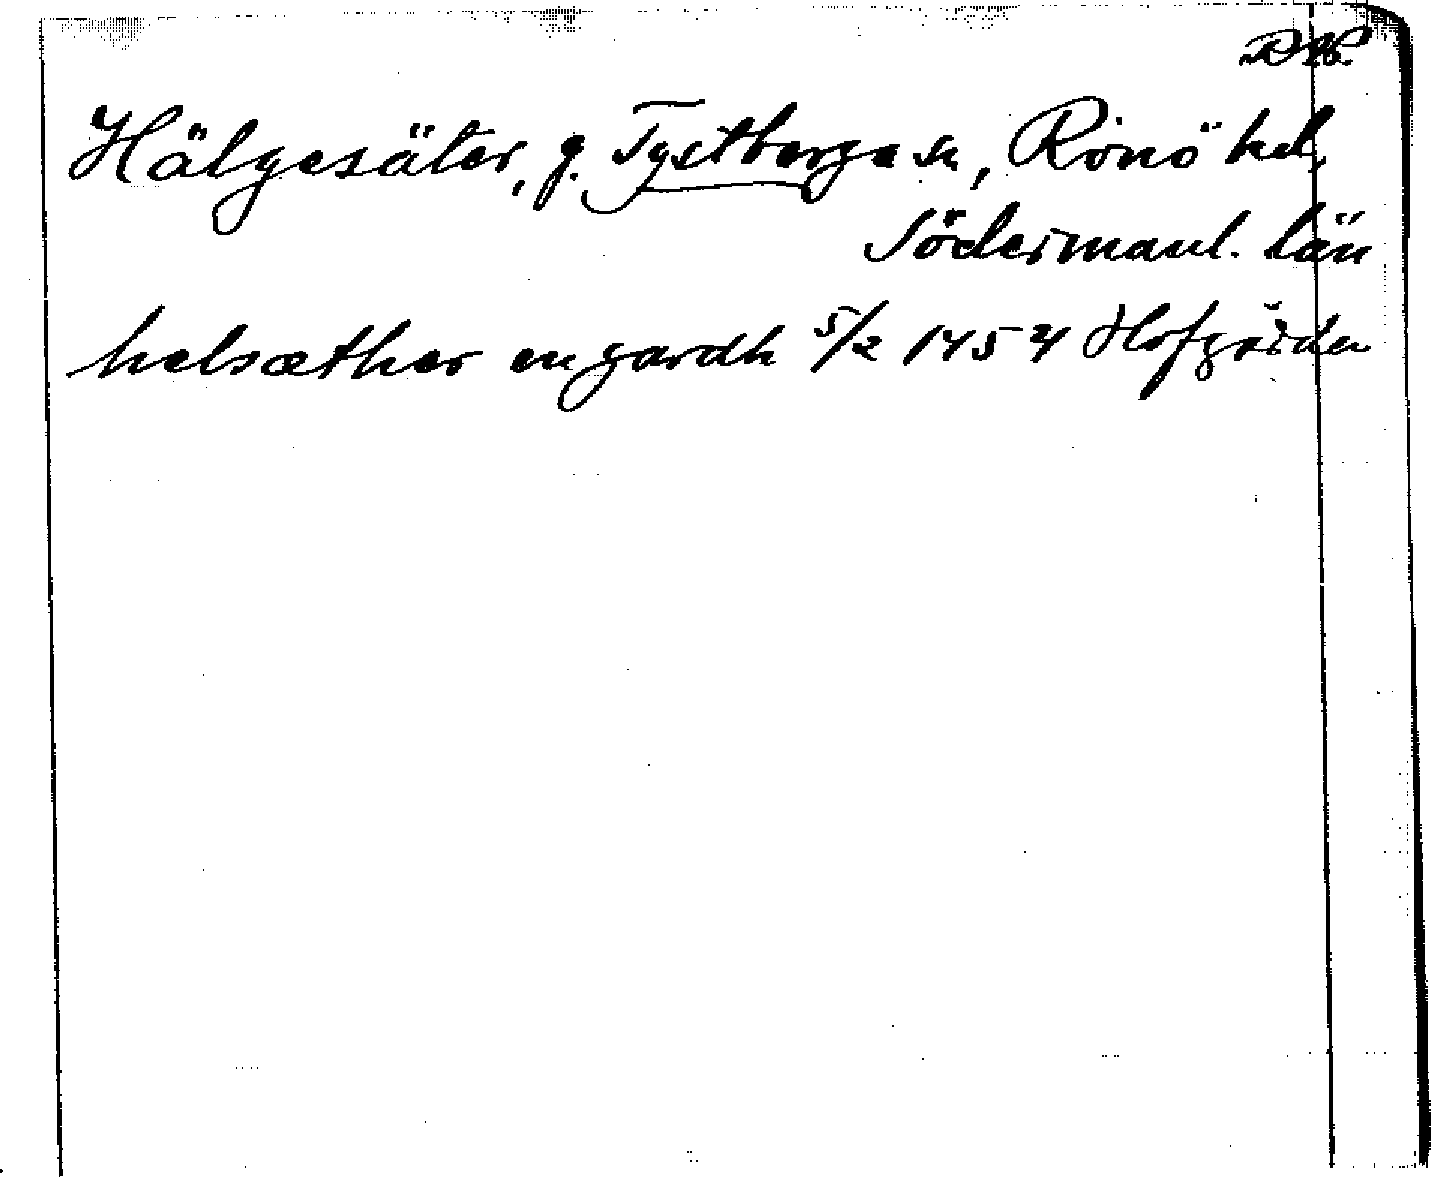 Hälgesäter, g. Tystberga sn, Rönö hd,
Södermanl. län
helsæther en gardh 5/2 1454 Hofgården